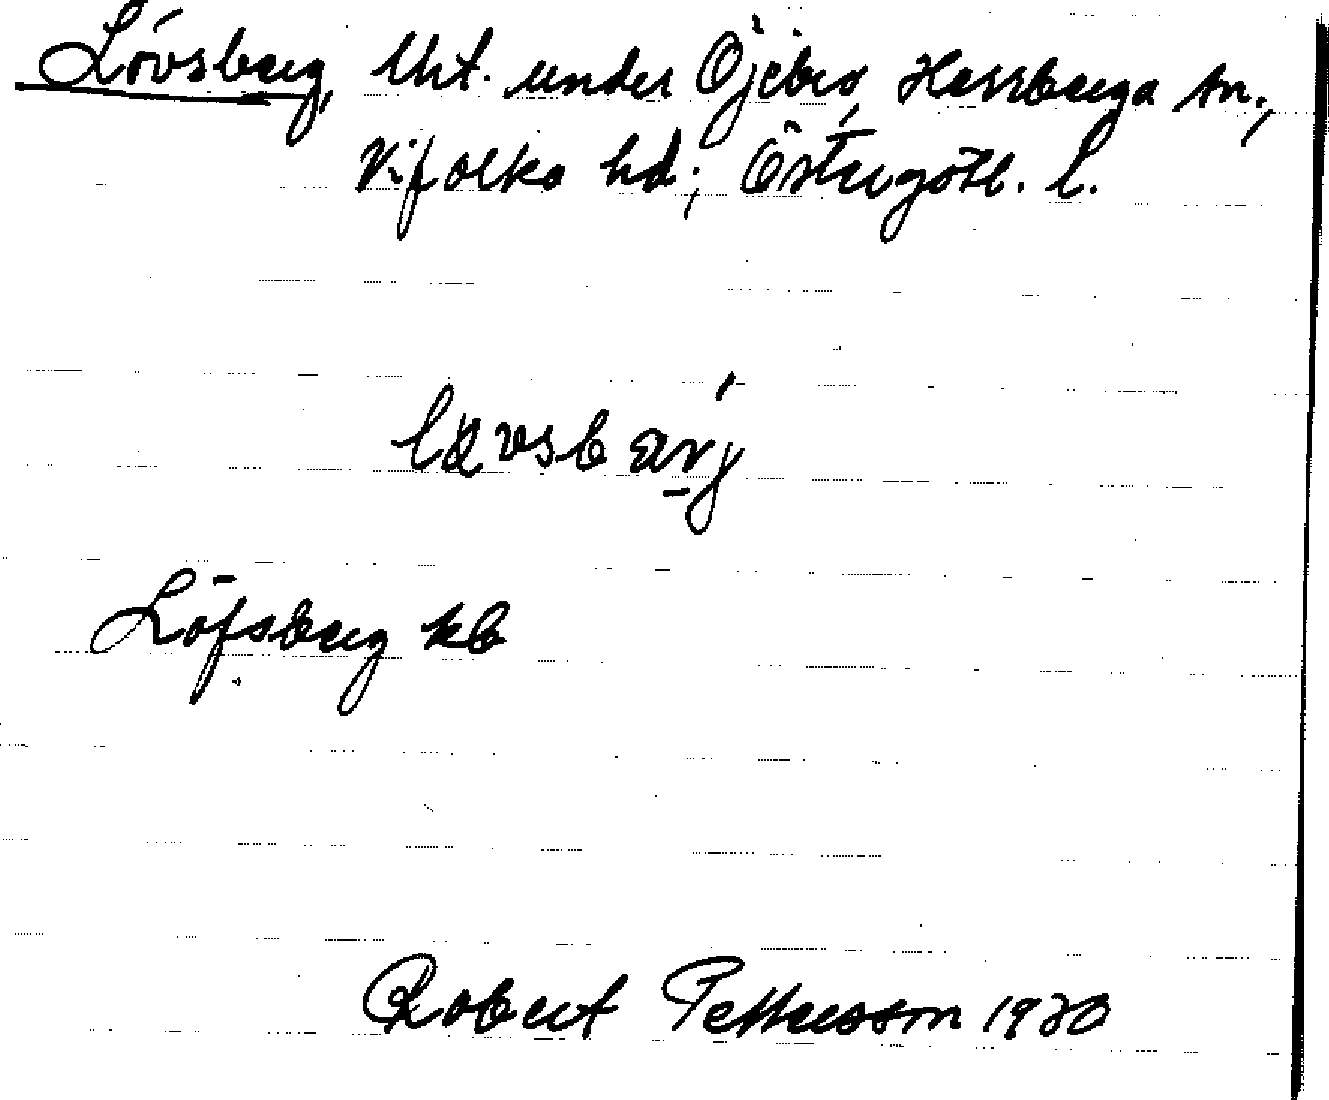 Lövsberg, lht. under Öjebro, Herrberga sn.,
Vifolka hd; Östergötl. l.
Löfsberg kb
Robert Pettersson 1930